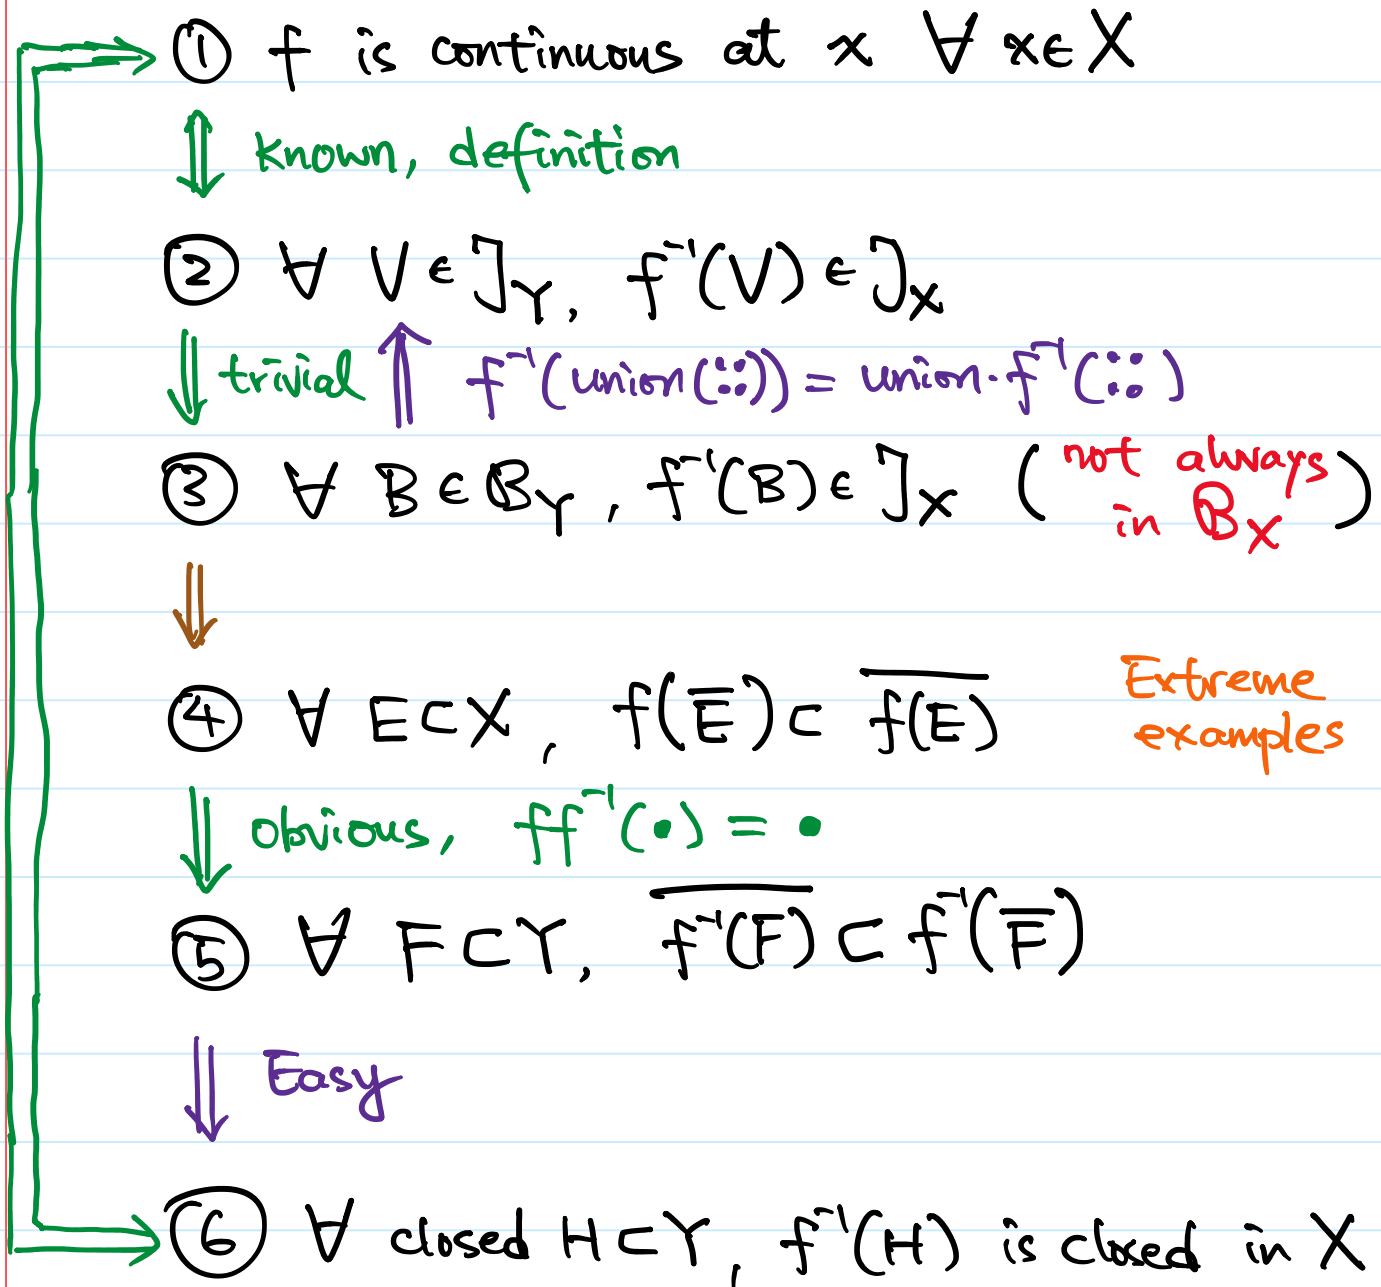 ① f is continuous at x ∀ x∈X
known, definition
② ∀ V∈𝒥_Y, f⁻¹(V)∈𝒥_X
trivial f⁻¹(union(::)) = union·f⁻¹(::)
③ ∀ B∈ℬ_Y, f⁻¹(B)∈𝒥_X (not always in ℬ_X)
④ ∀ E⊂X, f(E̅)⊂ \overline{f(E)}
Extreme
examples
obvious, ff⁻¹(•) = •
⑤ ∀ F⊂Y, \overline{f⁻¹(F)} ⊂ f⁻¹(F̅)
Easy
⑥ ∀ closed H⊂Y, f⁻¹(H) is closed in X